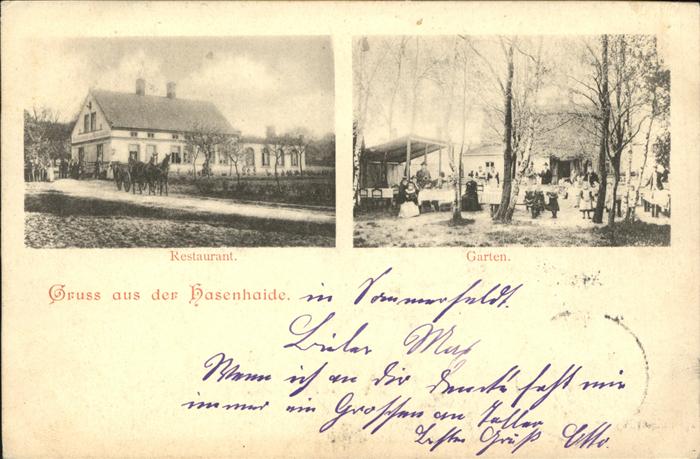 Restaurant.
Garten.
Gruss aus der Hasenhaide. in Sommerfeldt.
Lieber Max
Wenn ich an dir denke fehlt mir
immer ein Groschen an Taller
Besten Gruß Otto.